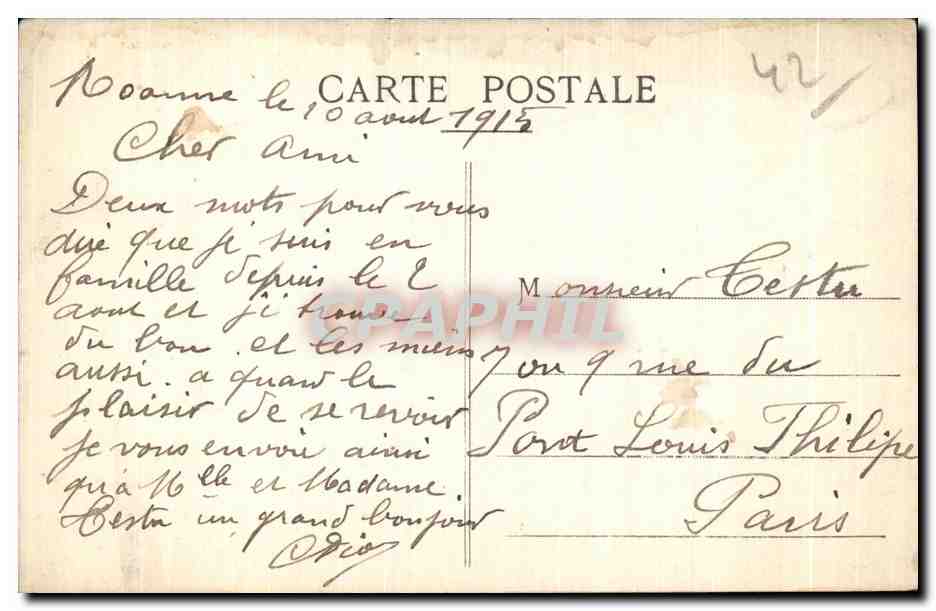 CARTE POSTALE
42
Roanne le 10 aout 1915
Cher Ami
Deux mots pour vous
dire que je suis en
famille depuis le 2
aout et j'i trouve
du bon et les miens
aussi. a quand le
plaisir de se revoir
je vous envoie ainsi
qu'a Mlle et Madame
Testu un grand bonjour
Monsieur Testu
7 ou 9 rue du
Pont Louis Philipe
Paris
CPAPHIL